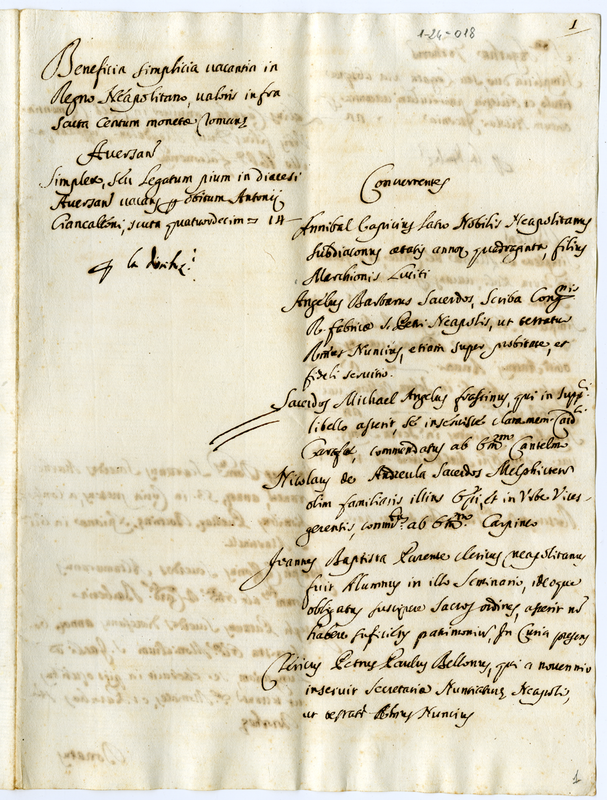 1-24-018
1
Beneficia simplicia vacantia in
Regno Neapolitano, valoris infra
scuta Centum monetæ Romanę
Aversanˢ
Simplex, seu Legatum pium in diæcesi
Aversanˢ vacans obitum Antonij
scuta quatuordecim = 14
Concurrentes
Annibal Capicius Latro Nobilis Neapolitanus
subdiaconus ætatis annoꝝ quadraginta, filius
Marchionis
Angelus Barbarus Sacerdos, Scriba Congⁿⁱˢ
R. fabricæ S. Petri Neapolis, ut testatur
Nuncius, etiam super probitate, et
fideli servitio.
Sacerdos Michael Angelus qui in suppᶜⁱ
libello asserit, se inservisse claræ mem. Card
commendatus ab Emᵐᵒ Cantelmo
Nicolaus de Andreula Sacerdos Melphictens
olim familiaris illius Epi, et in Urbe Vices-
gerentis, comm. ab Emᵐᵒ Carpineo
Joannes Baptista Parente clericus neapolitanus
fuit Alumnus in illo Seminario, ideoque
obligatus suscipere sacros ordines, asserit nō
habere sufficiens patrimoniū, In Curia præsens
Clericus Petrus Paulus Bellonus, qui a novennio
inservit Secretariæ Nuntiaturæ Neapolis,
ut testatr Nuncius
1